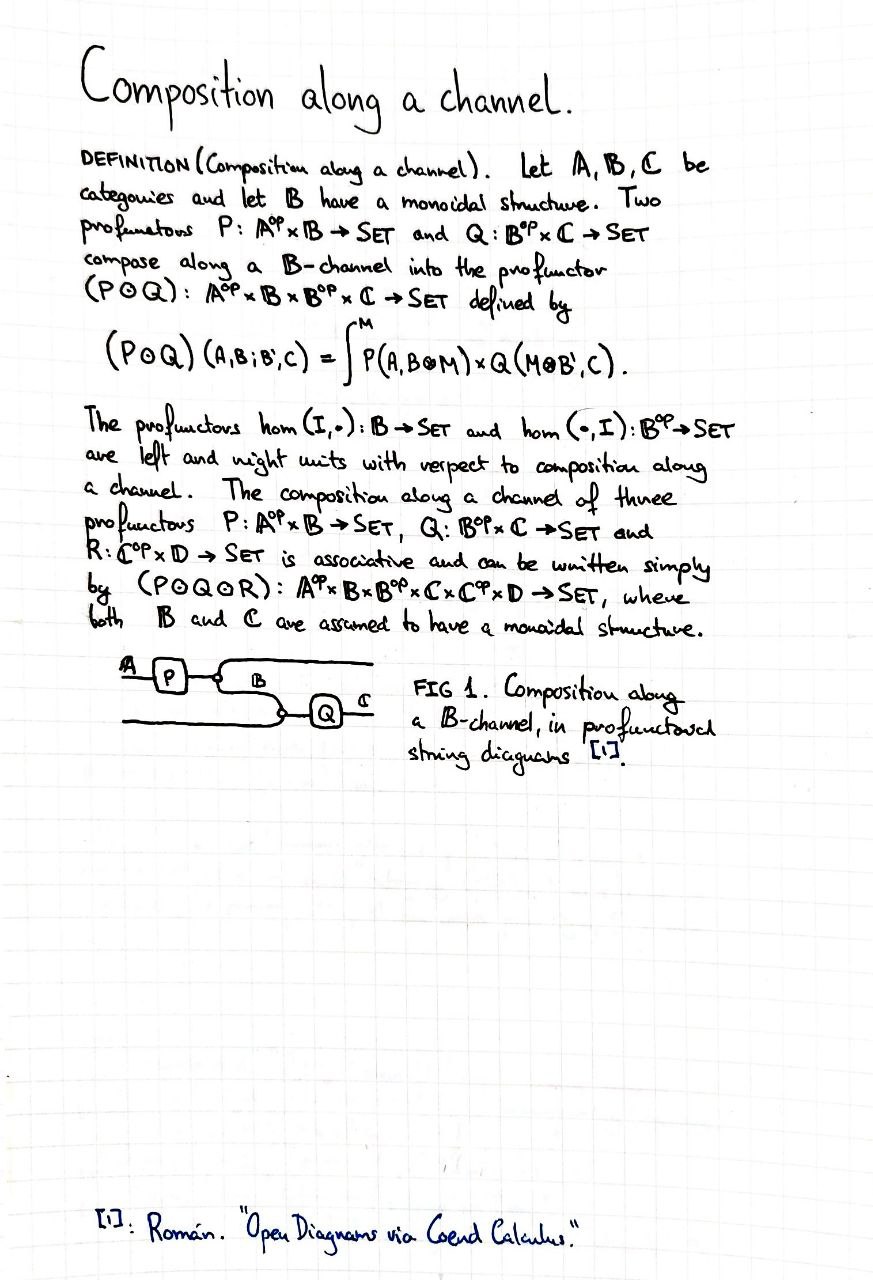 Composition along a channel.
DEFINITION (Composition along a channel). Let 𝔸, 𝔹, ℂ be
categories and let 𝔹 have a monoidal structure. Two
profunctors P: 𝔸ᵒᵖ × 𝔹 → SET and Q: 𝔹ᵒᵖ × ℂ → SET
compose along a 𝔹-channel into the profunctor
(P⊙Q): 𝔸ᵒᵖ × 𝔹 × 𝔹ᵒᵖ × ℂ → SET defined by
(P⊙Q)(A,B;B',C) = ∫ᴹ P(A,B⊗M) × Q(M⊗B',C).
The profunctors hom(I,•): 𝔹 → SET and hom(•,I): 𝔹ᵒᵖ → SET
are left and right units with respect to composition along
a channel. The composition along a channel of three
profunctors P: 𝔸ᵒᵖ × 𝔹 → SET, Q: 𝔹ᵒᵖ × ℂ → SET and
R: ℂᵒᵖ × 𝔻 → SET is associative and can be written simply
by (P⊙Q⊙R): 𝔸ᵒᵖ × 𝔹 × 𝔹ᵒᵖ × ℂ × ℂᵒᵖ × 𝔻 → SET, where
both 𝔹 and ℂ are assumed to have a monoidal structure.
𝔸 P 𝔹 Q ℂ
FIG 1. Composition along
a 𝔹-channel, in profunctorial
string diagrams [1].
[1]: Román. "Open Diagrams via Coend Calculus."